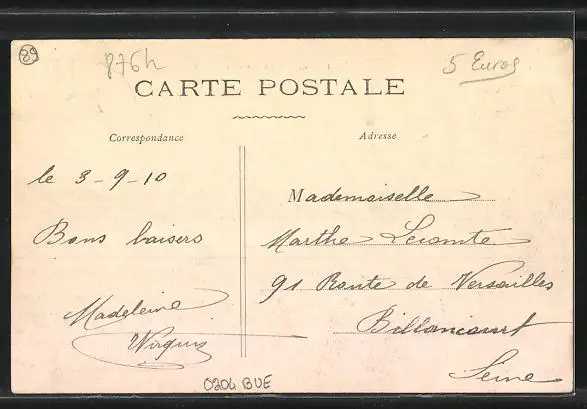 89
876h
5 Euros
CARTE POSTALE
Correspondance
Adresse
le 3-9-10
Bons baisers
Madeleine
Mademoiselle
Marthe Lecomte
91 Route de Versailles
Billancourt
Seine
0204 BUE